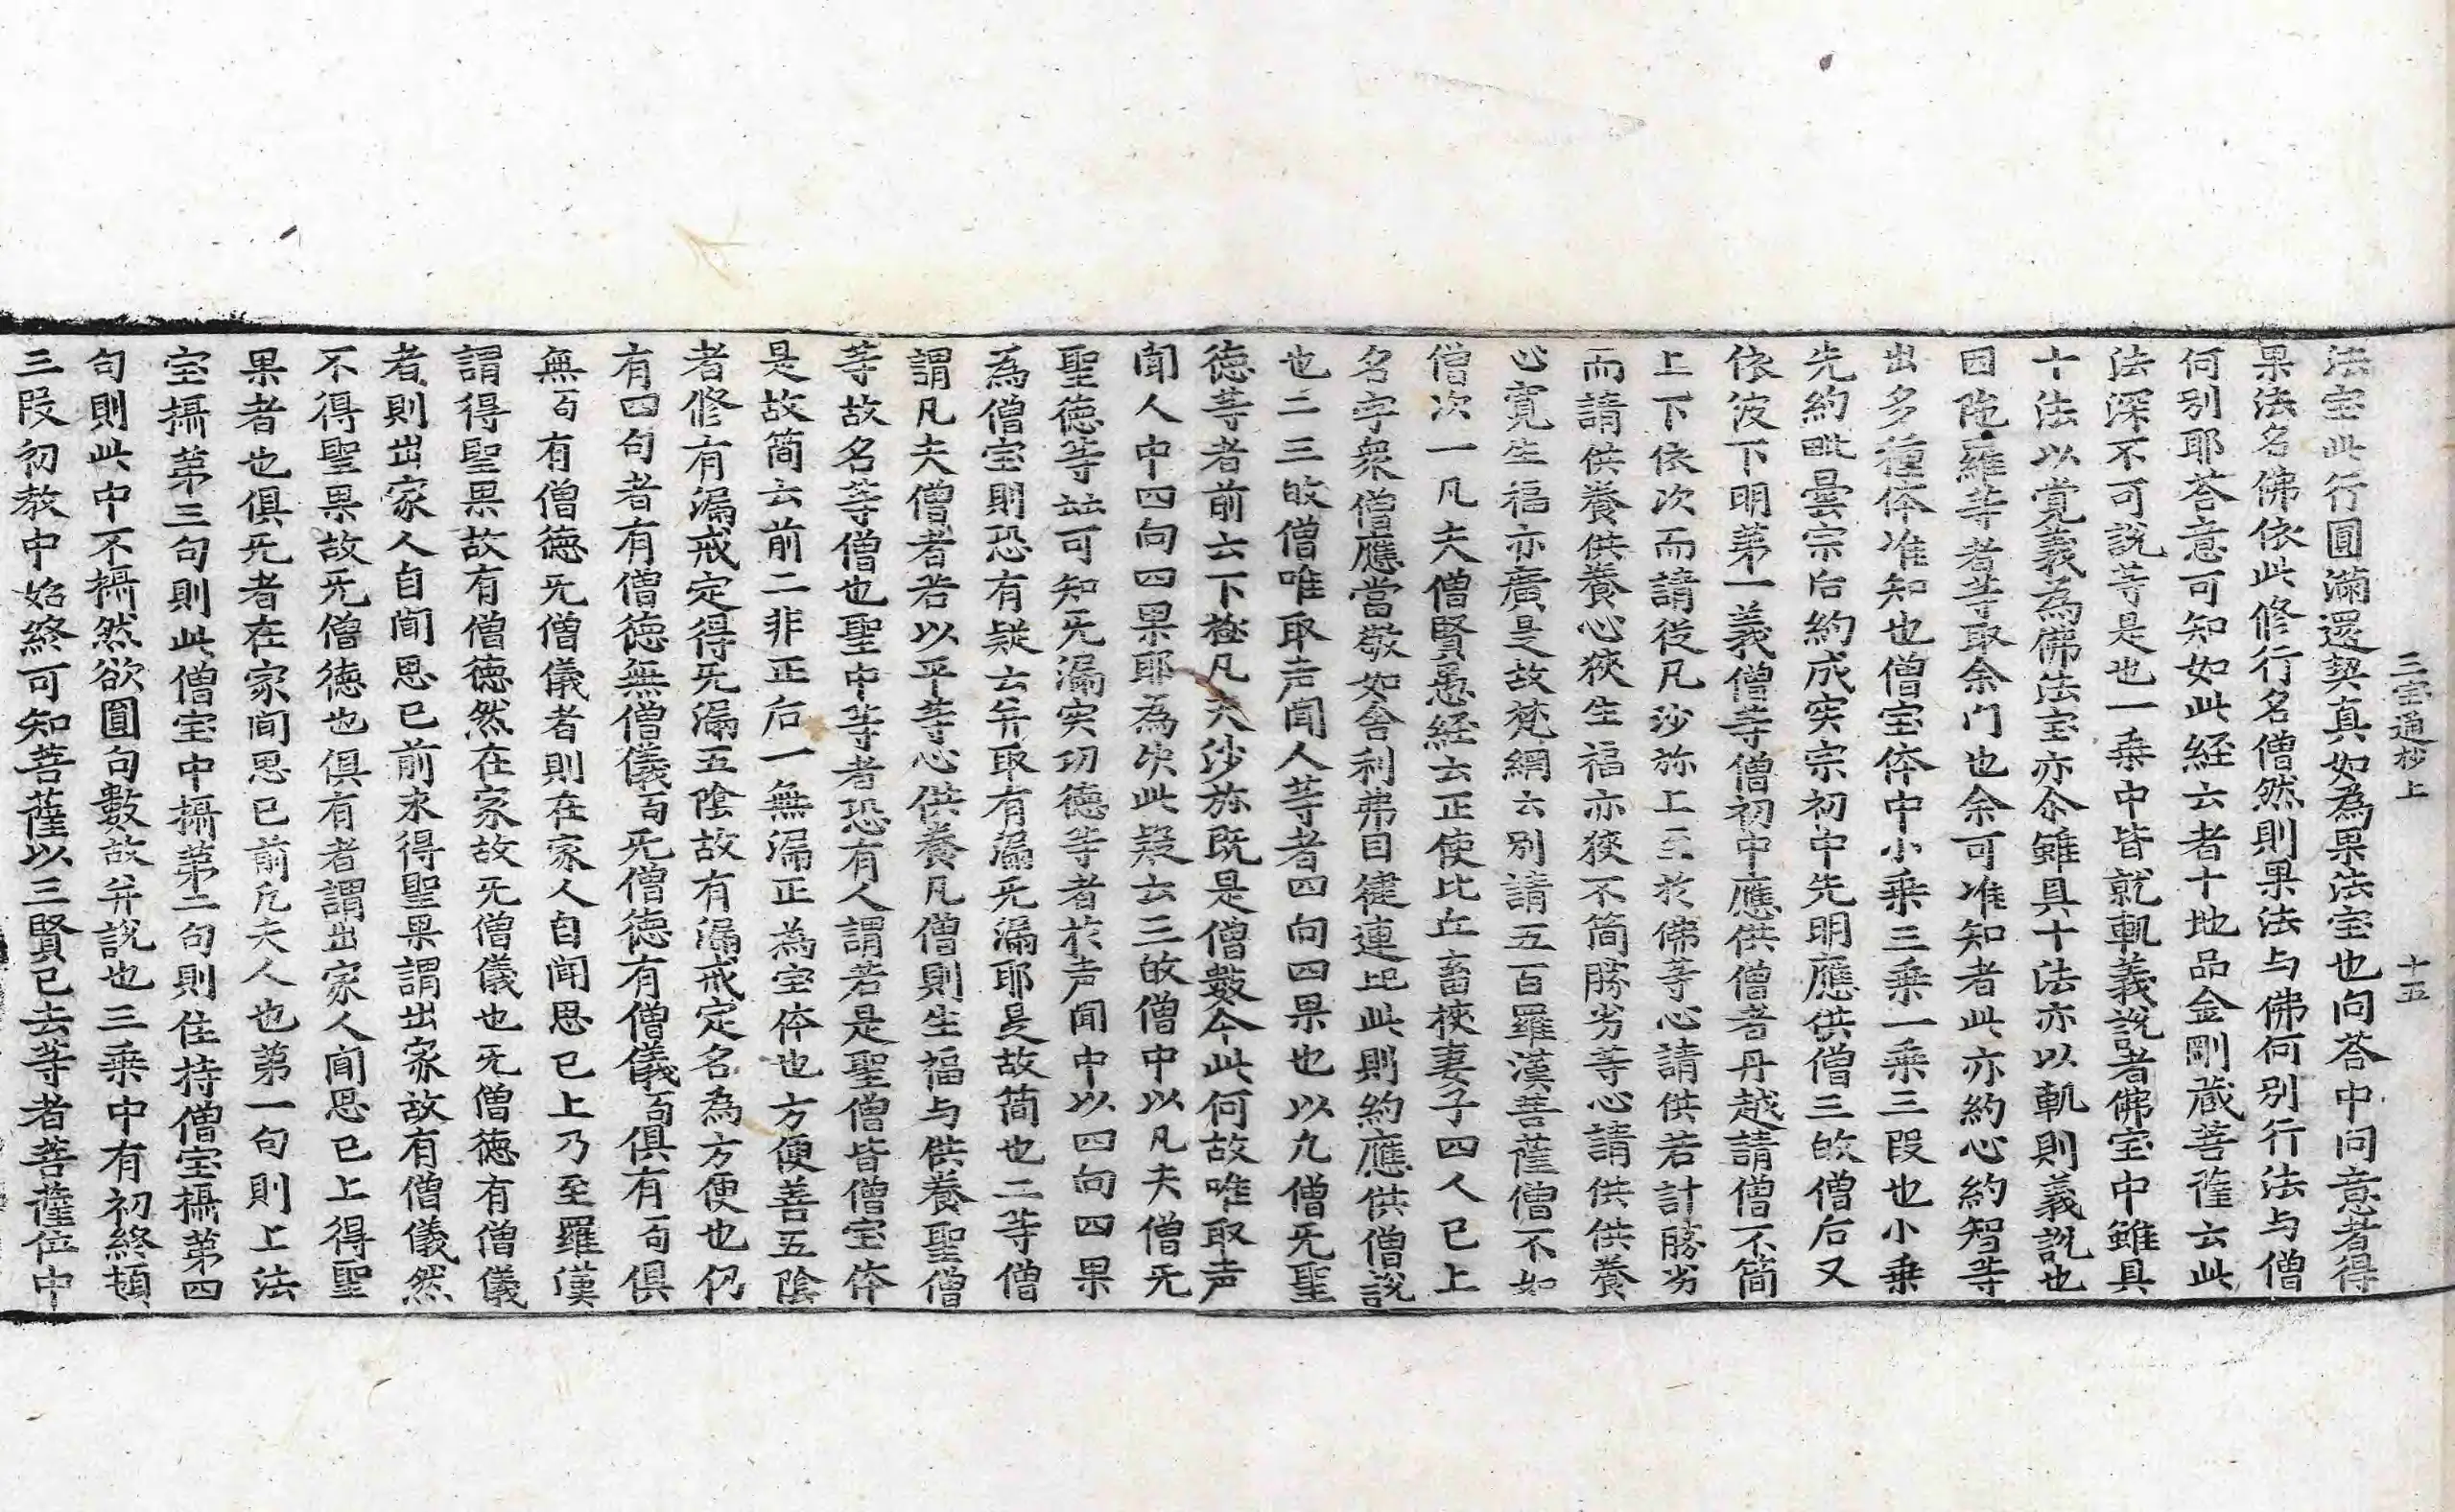 三宝通抄上　十五
法宝此行圓滿還契真如為果法宝也向荅中问意者得
果法名佛依此修行名僧然則果法与佛何別行法与僧
何別耶荅意可知如此経云者十地品金剛蔵菩薩云此
法深不可說等是也一乗中皆就軌義說者佛宝中雖具
十法以覚義為佛法宝亦尒雖具十法亦以軌則義說也
因陁羅等者等取余门也余可准知者此亦約心約智等
出多種体准知也僧宝体中小乗三乗一乗三段也小乗
先約毗曇宗后約成实宗初中先明應供僧三故僧后又
依彼下明第一義僧等僧初中應供僧者丹越請僧不简
上下依次而請従凡沙弥上至於佛等心請供若計勝劣
而請供養供養心狹生福亦狹不简勝劣等心請供供養
心寛生福亦廣是故梵網云別請五百羅漢菩薩僧不如
僧次一凡夫僧賢愚経云正使比丘畜挾妻子四人已上
名字衆僧應當敬如舍利弗目揵連比此則約應供僧說
也二三故僧唯取声闻人等者四向四果也以九僧旡聖
徳等者前云下極凡夫沙弥既是僧數今此何故唯取声
闻人中四向四果耶為决此疑云三故僧中以凡夫僧旡
聖徳等故可知旡漏实功徳等者於声闻中以四向四果
為僧宝則恐有疑云并取有漏旡漏耶是故简也二等僧
謂凡夫僧者若以平等心供養凡僧則生福与供養聖僧
等故名等僧也聖中等者恐有人謂若是聖僧皆僧宝体
是故简云前二非正后一無漏正為宝体也方便善五陰
者修有漏戒定得旡漏五陰故有漏戒定名為方便也仍
有四句者有僧徳無僧儀一句旡僧徳有僧儀一句俱有一句俱
無一句有僧徳旡僧儀者則在家人自闻思已上乃至羅漢
謂得聖果故有僧徳然在家故旡僧儀也旡僧徳有僧儀
者則出家人自闻思已前未得聖果謂出家故有僧儀然
不得聖果故旡僧徳也俱有者謂出家人闻思已上得聖
果者也俱旡者在家闻思已前凡夫人也第一句則上法
宝攝第三句則此僧宝中攝第二句則住持僧宝攝第四
句則此中不攝然欲圓句數故并說也三乗中有初終頓
三段初教中始終可知菩薩以三賢已去等者菩薩位中